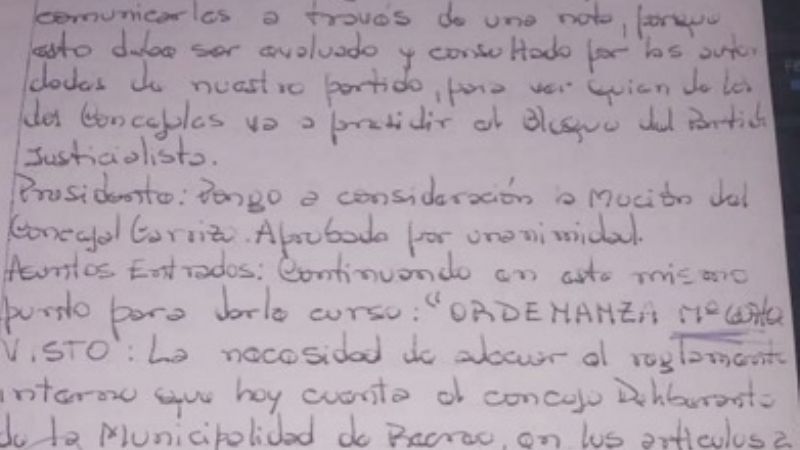 comunicarlos a través de una nota, porque
esto debe ser evaluado y consultado por las autori
dades de nuestro partido, para ver quien de los
dos Concejales va a presidir el Bloque del Partido
Justicialista.
Presidente: Pongo a consideración a Moción del
Concejal Garriz. Aprobada por unanimidad.
Asuntos Entrados: Continuando en este mismo
punto para darle curso: "ORDENANZA Nº
VISTO: La necesidad de adecuar el reglamento
interno que hoy cuenta el concejo Deliberante
de la Municipalidad de Recreo, en los artículos 2